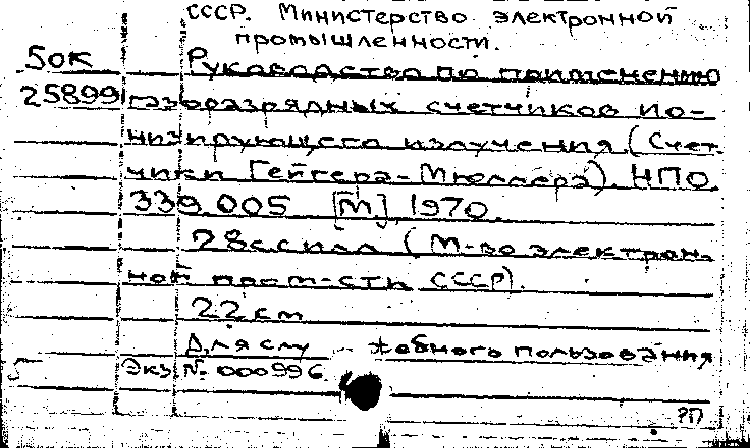 СССР. Министерство электронной
промышленности.
50К Руководство по применению
25899 газоразрядных счетчиков ио-
низирующего излучения (Счет-
чики Гейгера-Мюллера). НПО.
339.005 [М], 1970.
28с с илл (М-во электрон-
ной пром-сти СССР).
22 см
Для служебного пользования
Экз. № 000996